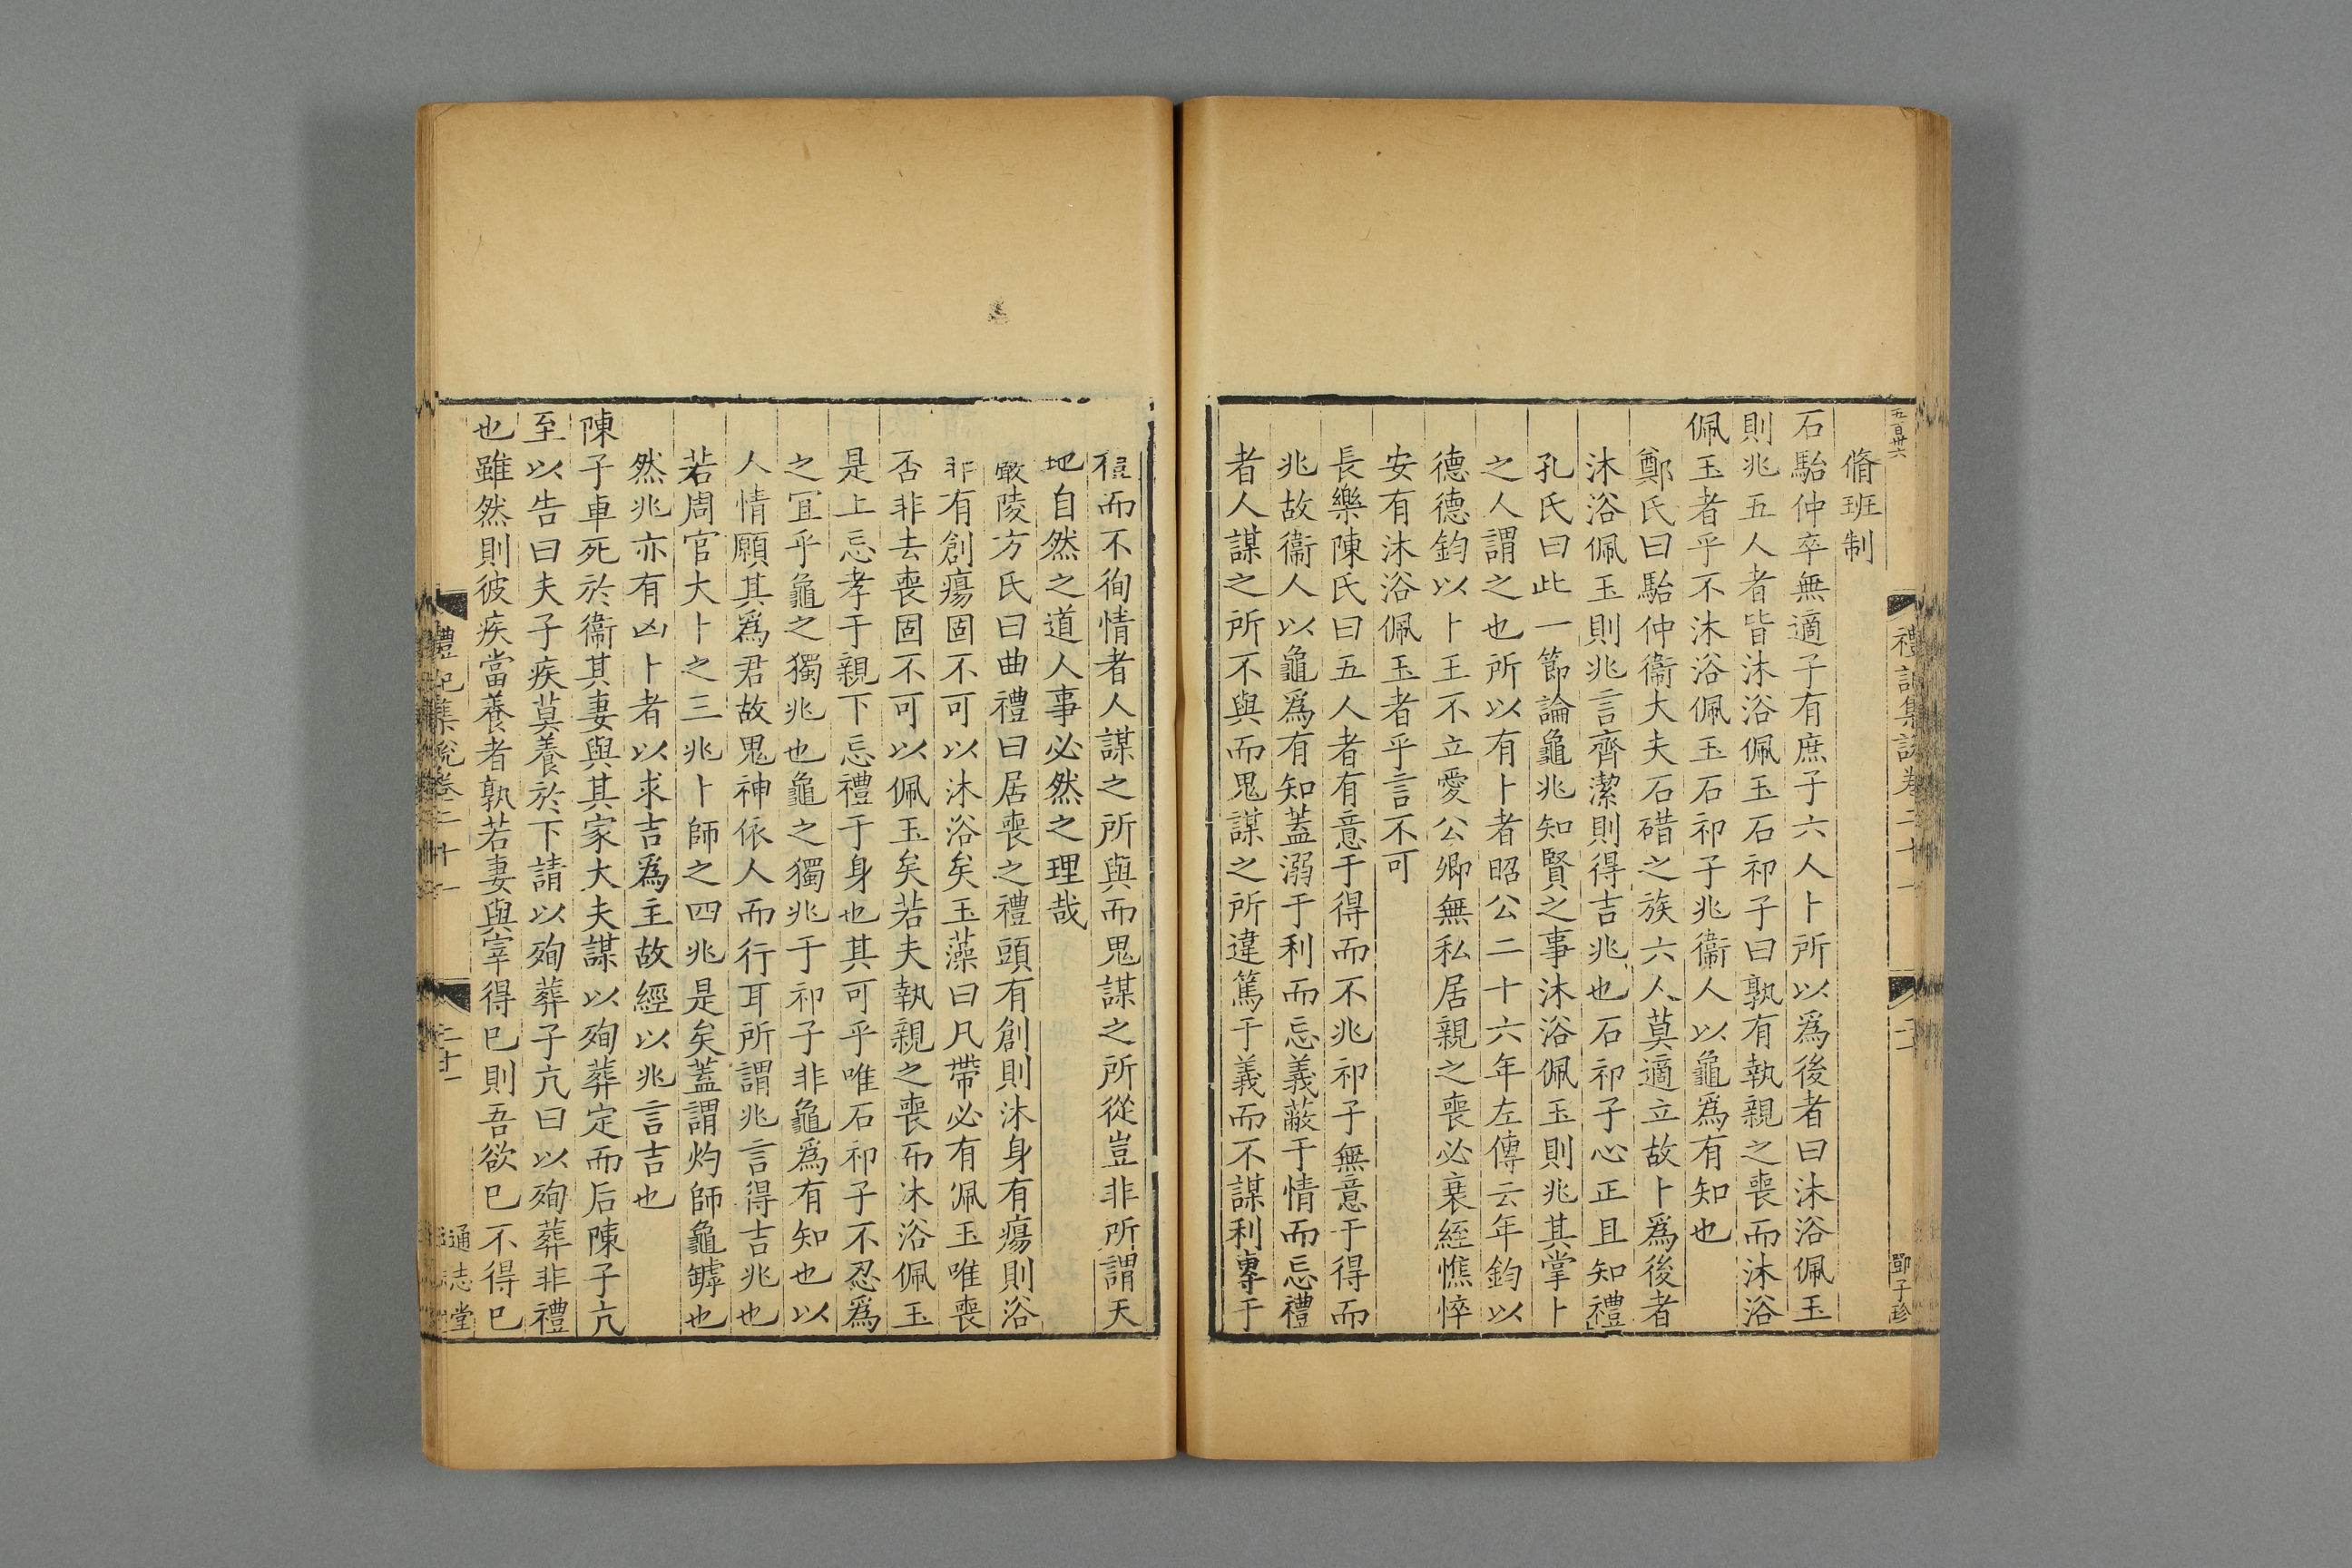 五百卅六
脩班制
石駘仲卒無適子有庶子六人卜所以爲後者曰沐浴佩玉
則兆五人者皆沐浴佩玉石祁子曰孰有執親之喪而沐浴
佩玉者乎不沐浴佩玉石祁子兆衞人以龜爲有知也
鄭氏曰駘仲衞大夫石碏之族六人莫適立故卜爲後者
沐浴佩玉則兆言齊潔則得吉兆也石祁子心正且知禮
孔氏曰此一節論龜兆知賢之事沐浴佩玉則兆其掌卜
之人謂之也所以有卜者昭公二十六年左傳云年鈞以
德德鈞以卜王不立愛公卿無私居親之喪必衰絰憔悴
安有沐浴佩玉者乎言不可
長樂陳氏曰五人者有意于得而不兆祁子無意于得而
兆故衞人以龜爲有知蓋溺于利而忘義蔽于情而忘禮
者人謀之所不與而鬼謀之所違篤于義而不謀利專于
禮而不徇情者人謀之所與而鬼謀之所從豈非所謂天
地自然之道人事必然之理哉
嚴陵方氏曰曲禮曰居喪之禮頭有創則沐身有瘍則浴
非有創瘍固不可以沐浴矣玉藻曰凡帶必有佩玉唯喪
否非去喪固不可以佩玉矣若夫執親之喪而沐浴佩玉
是上忘孝于親下忘禮于身也其可乎唯石祁子不忍爲
之宜乎龜之獨兆也龜之獨兆于祁子非龜爲有知也以
人情願其爲君故鬼神依人而行耳所謂兆言得吉兆也
若周官大卜之三兆卜師之四兆是矣蓋謂灼師龜罅也
然兆亦有凶卜者以求吉爲主故經以兆言吉也
陳子車死於衞其妻與其家大夫謀以殉葬定而后陳子亢
至以告曰夫子疾莫養於下請以殉葬子亢曰以殉葬非禮
也雖然則彼疾當養者孰若妻與宰得已則吾欲已不得已
禮記集說卷二十一
二十一
通志堂
禮記集說卷二十一
鄧子珍